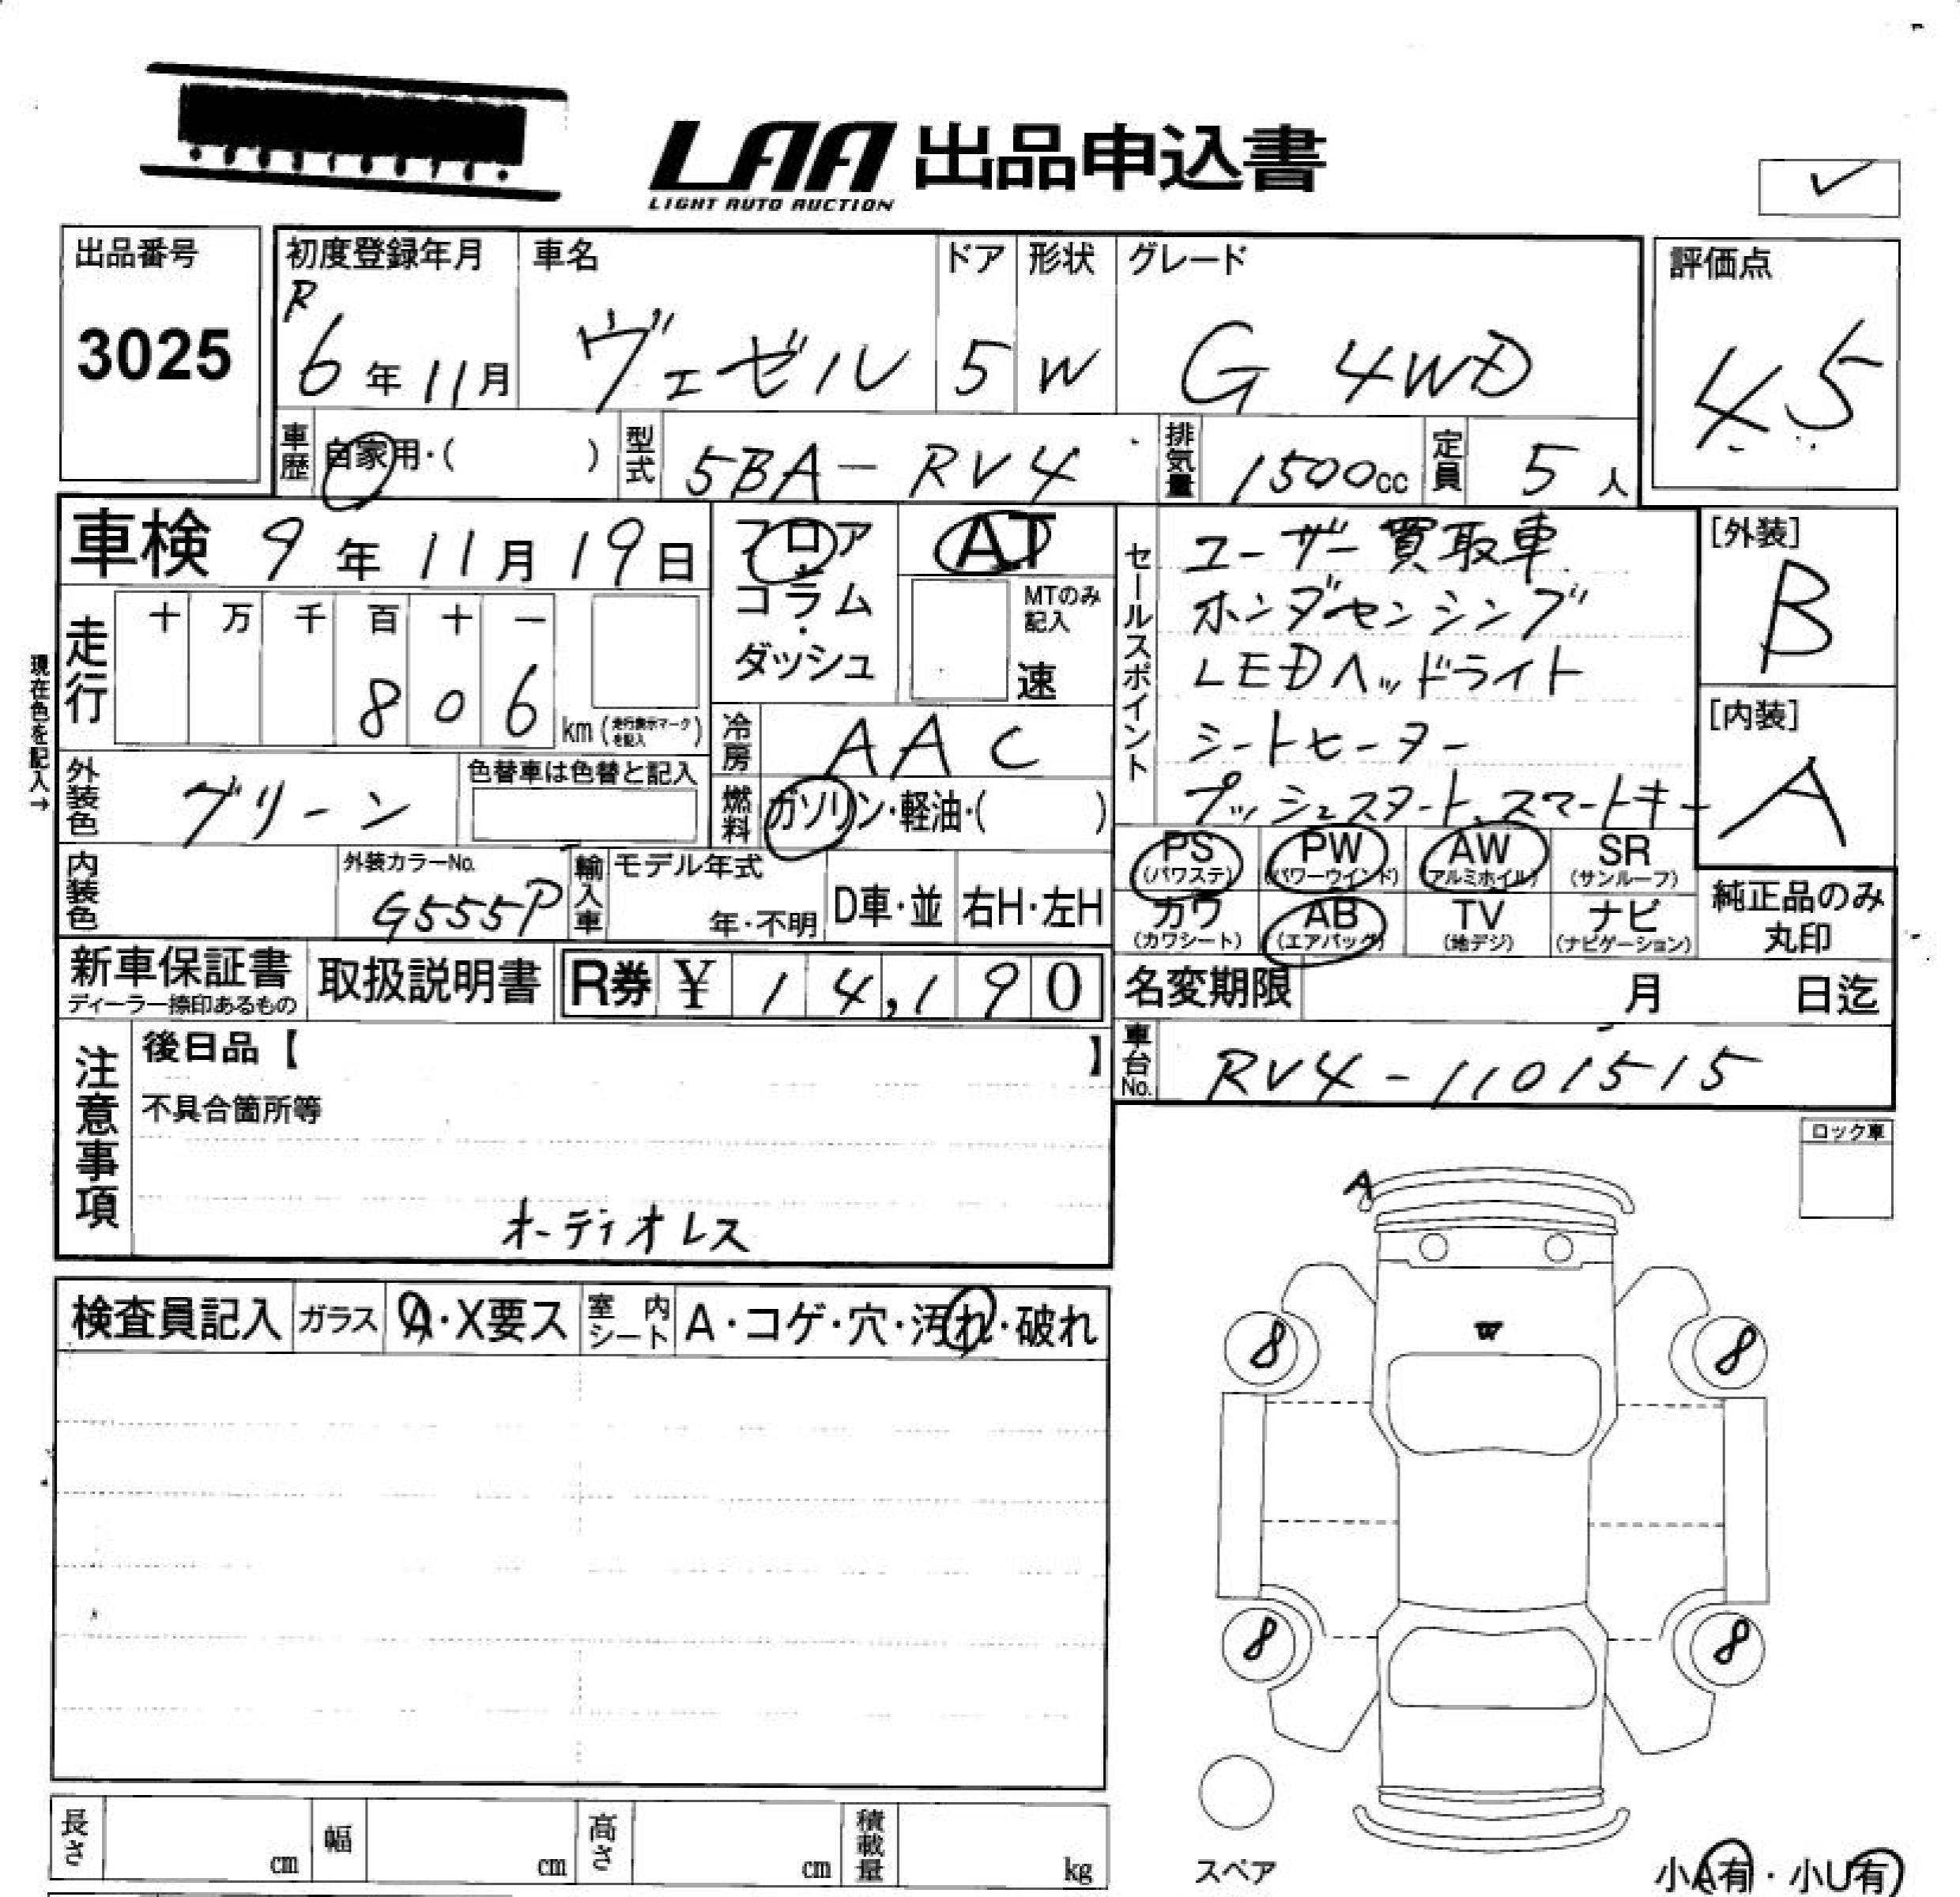 LAA 出品申込書
LIGHT AUTO AUCTION
出品番号
3025
初度登録年月
R
6年11月
車名
ヴェゼル
ドア
5
形状
W
グレード
G 4WD
評価点
4.5
車歴
自家用・( )
型式
5BA-RV4
排気量
1500cc
定員
5人
車検 9年11月19日
フロア
コラム
・
ダッシュ
AT
MTのみ
記入
速
セールスポイント
ユーザー買取車
ホンダセンシング
LEDヘッドライト
シートヒーター
プッシュスタート、スマートキー
[外装]
B
[内装]
A
現在色を記入→
走行
十 万 千 百 十 一
8 0 6
km(走行表示マークを記入)
冷房
AAC
外装色
グリーン
色替車は色替と記入
燃料
ガソリン・軽油・( )
PS
(パワステ)
PW
(パワーウインド)
AW
(アルミホイル)
SR
(サンルーフ)
カワ
(カワシート)
AB
(エアバッグ)
TV
(地デジ)
ナビ
(ナビゲーション)
純正品のみ
丸印
内装色
外装カラーNo.
G555P
輸入車
モデル年式
年・不明
D車・並
右H・左H
新車保証書
ディーラー捺印あるもの
取扱説明書
R券 ¥ 14,190
名変期限
月 日迄
車台No.
RV4-1101515
注意事項
後日品【 】
不具合箇所等
オーディオレス
ロック車
検査員記入
ガラス
A・X要ス
室内シート
A・コゲ・穴・汚れ・破れ
A
W
8 8
8 8
スペア
小A有・小U有
長さ cm
幅 cm
高さ cm
積載量 kg